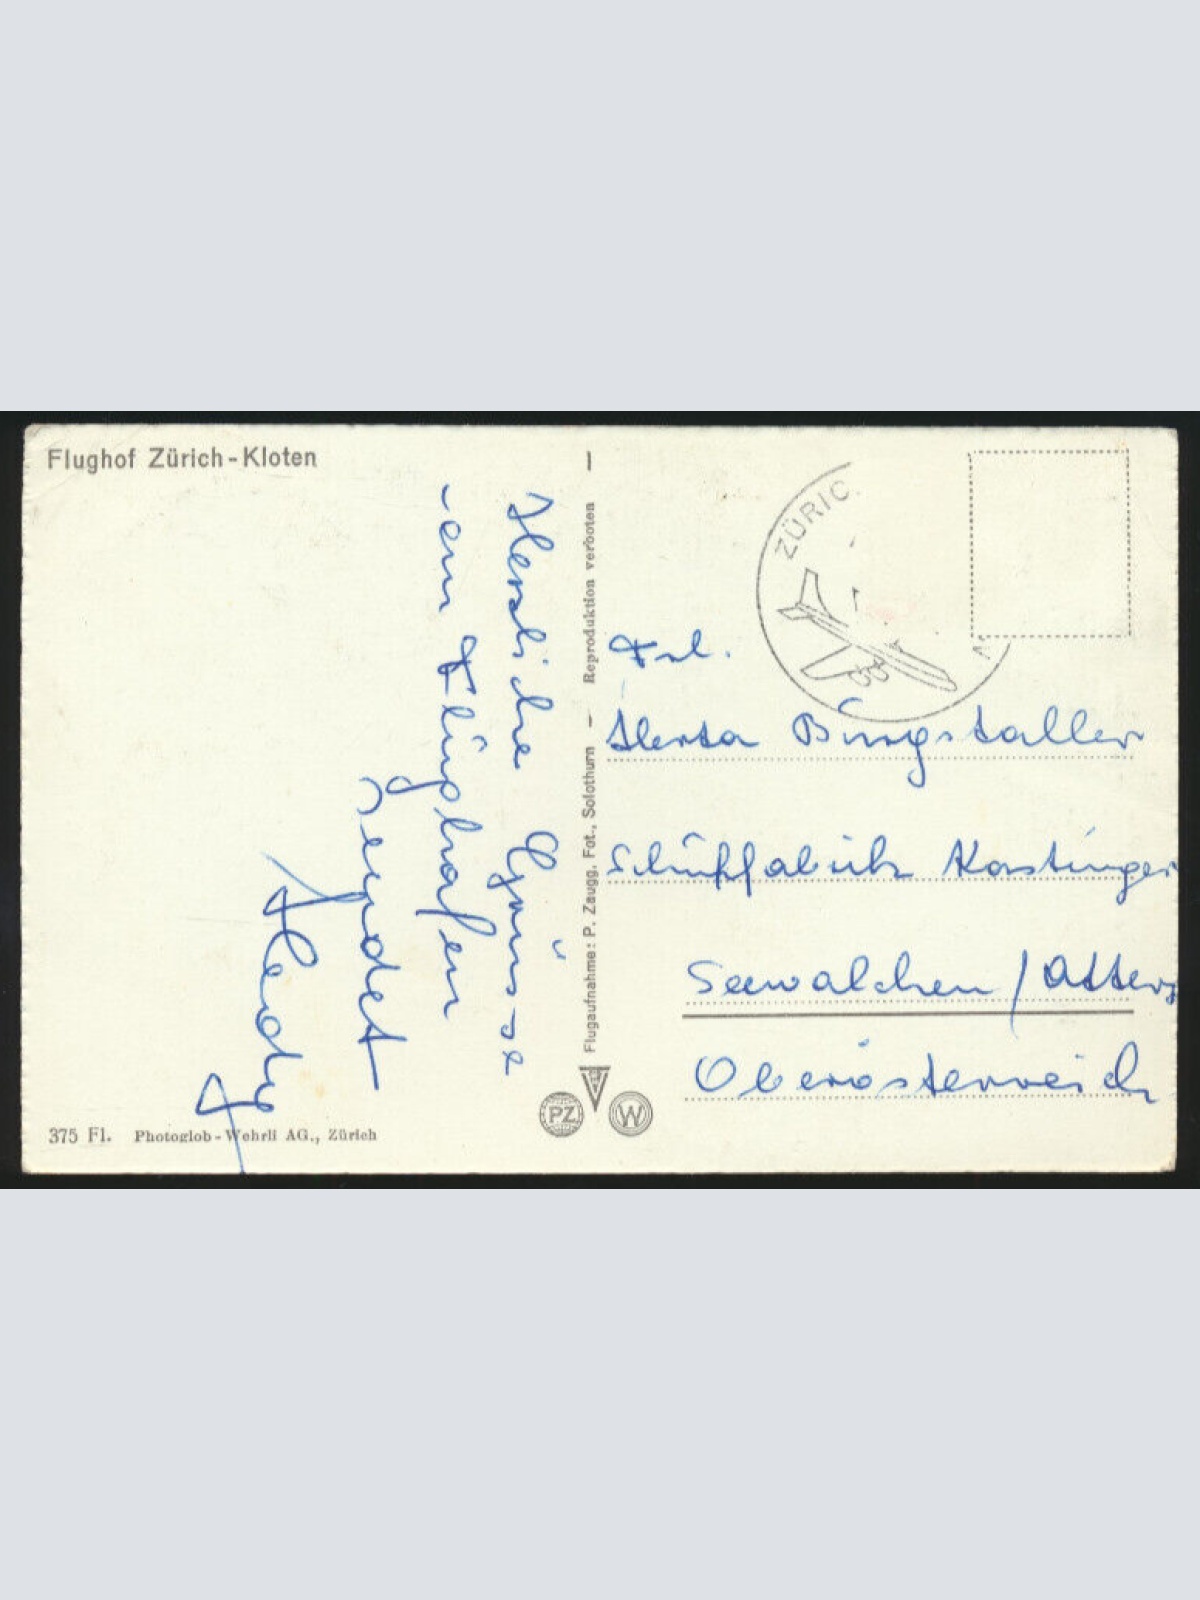 Flughof Zürich-Kloten
Herzliche Grüsse
vom Flughafen
sendet
Hedy
375 Fl. Photoglob-Wehrli AG., Zürich
Flugaufnahme: P. Zaugg, Fot., Solothurn — Reproduktion verboten —
PZ
W
ZÜRIC
Frl.
Herta Burgstaller
Schuhfabrik Kastinger
Seewalchen / Atters
Oberösterreich